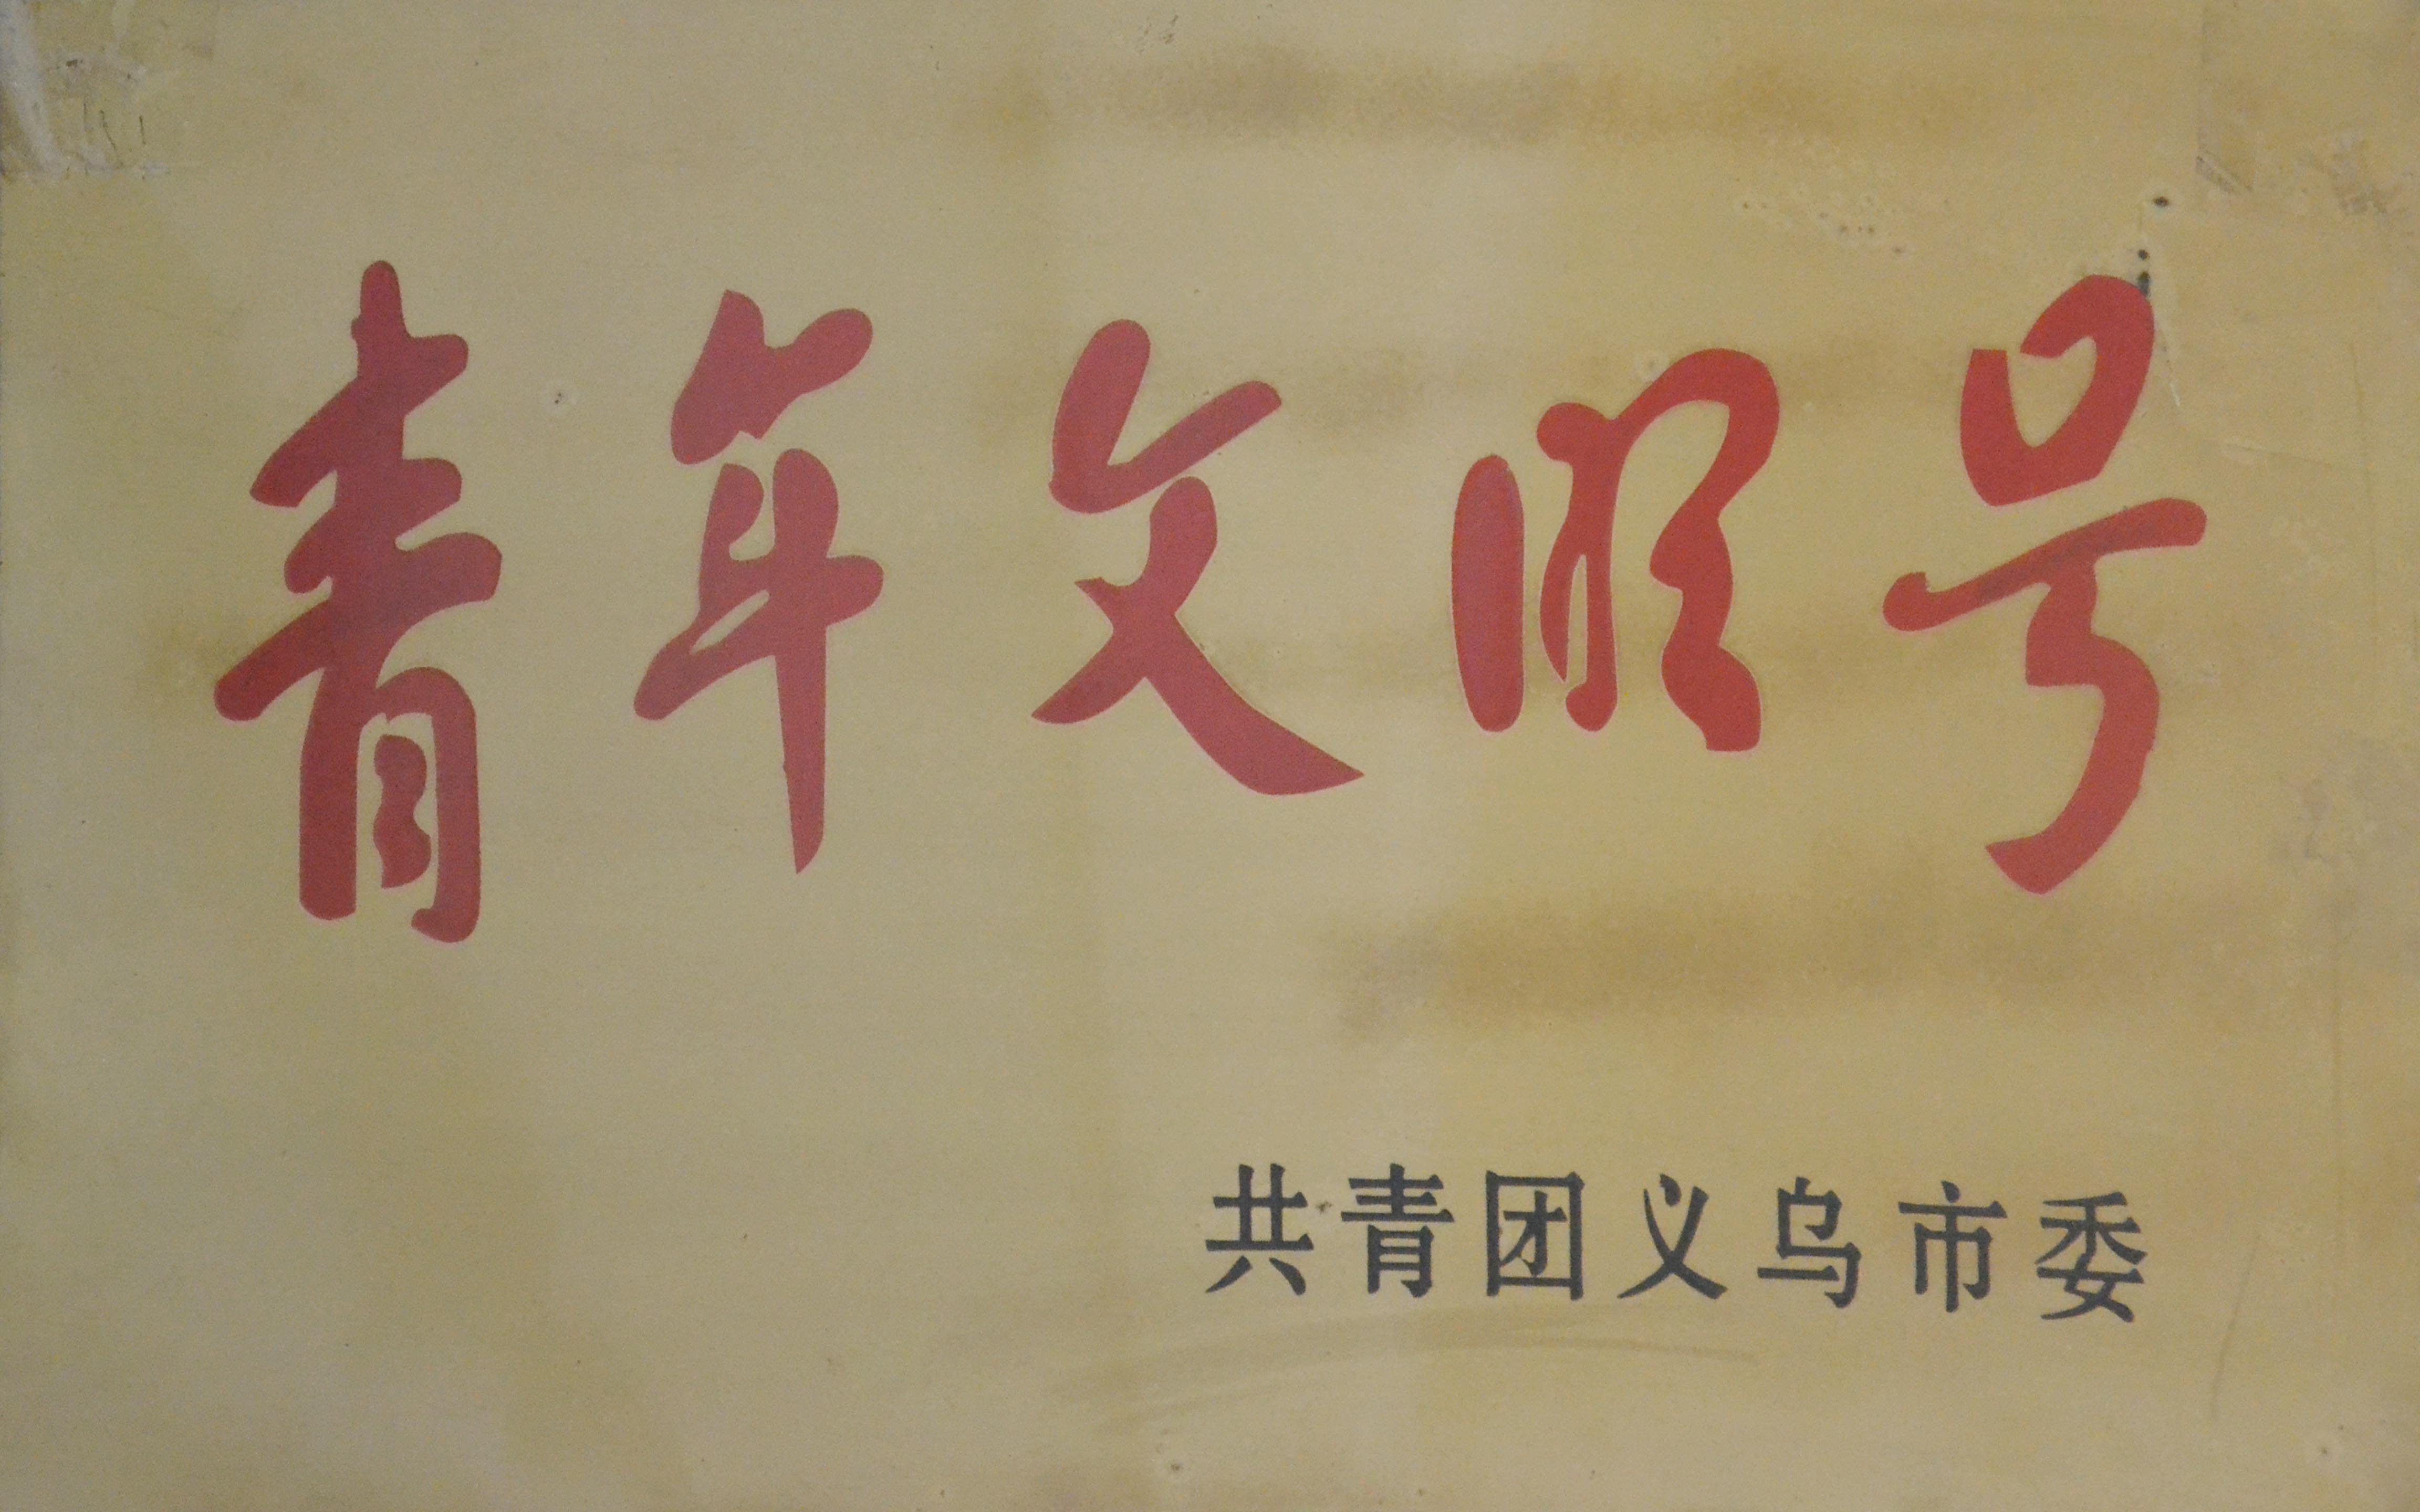 青年文明号
共青团义乌市委